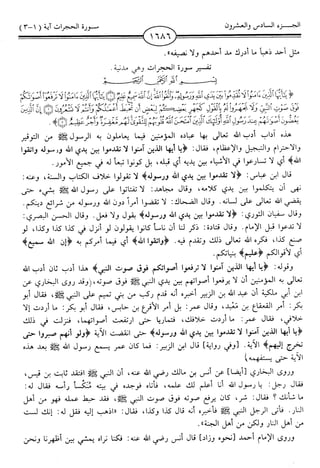 الجـــزء السادس والعشرون
١٦٨٦
سورة الحجرات آية (١-٣)
مثل أحد ذهباً ما أدرك مد أحدهم ولا نصيفه».
تفسير سورة الحجرات وهي مدنية.
هذه آداب أدب الله تعالى بها عباده المؤمنين فيما يعاملون به الرسول ﷺ من التوقير
والاحترام والتبجيل والإعظام، فقال: ﴿يا أيها الذين آمنوا لا تقدموا بين يدي الله ورسوله واتقوا
الله﴾ أي لا تسارعوا في الأشياء بين يديه أي قبله، بل كونوا تبعاً له في جميع الأمور.
قال ابن عباس: ﴿لا تقدموا بين يدي الله ورسوله﴾ لا تقولوا خلاف الكتاب والسنة، وعنه:
نهى أن يتكلموا بين يدي كلامه، وقال مجاهد: لا تفتاتوا على رسول الله ﷺ بشيء حتى
يقضي الله تعالى على لسانه. وقال الضحاك: لا تقضوا أمراً دون الله ورسوله من شرائع دينكم.
وقال سفيان الثوري: ﴿لا تقدموا بين يدي الله ورسوله﴾ بقول ولا فعل. وقال الحسن البصري:
لا تدعوا قبل الإمام. وقال قتادة: ذكر لنا أن ناساً كانوا يقولون لو أنزل في كذا كذا وكذا، لو
صنع كذا، فكره الله تعالى ذلك وتقدم فيه. ﴿واتقوا الله﴾ أي فيما أمركم به ﴿إن الله سميع﴾
أي لأقوالكم ﴿عليم﴾ بنياتكم.
وقوله: ﴿يا أيها الذين آمنوا لا ترفعوا أصواتكم فوق صوت النبي﴾ هذا أدب ثان أدب الله
تعالى به المؤمنين أن لا يرفعوا أصواتهم بين يدي النبي ﷺ فوق صوته، (وقد روى البخاري عن
ابن أبي مليكة أن عبد الله بن الزبير أخبره أنه قدم ركب من بني تميم على النبي ﷺ، فقال أبو
بكر: أمر القعقاع بن معبد، وقال عمر: بل أمر الأقرع بن حابس، فقال أبو بكر: ما أردت إلا
خلافي، فقال عمر: ما أردت خلافك، فتماريا حتى ارتفعت أصواتهما، فنزلت في ذلك
﴿يا أيها الذين آمنوا لا تقدموا بين يدي الله ورسوله﴾ حتى انقضت الآية ﴿ولو أنهم صبروا حتى
تخرج إليهم﴾ الآية. [وفي رواية] قال ابن الزبير: فما كان عمر يسمع رسول الله ﷺ بعد هذه
الآية حتى يستفهمه]
وروى البخاري [أيضا] عن أنس بن مالك رضي الله عنه، أن النبي ﷺ افتقد ثابت بن قيس،
فقال رجل: يا رسول الله أنا أعلم لك علمه، فأتاه فوجده في بيته مُنكِّساً رأسه فقال له:
ما شأنك ؟ فقال: شر، كان يرفع صوته فوق صوت النبي ﷺ، فقد حبط عمله فهو من أهل
النار. فأتى الرجل النبي ﷺ فأخبره أنه قال كذا وكذا، فقال: «اذهب إليه فقل له: إنك لست
من أهل النار ولكن من أهل الجنة».
وروى الإمام أحمد (نحوه وزاد) قال أنس رضي الله عنه: فكنا نراه يمشي بين أظهرنا ونحن